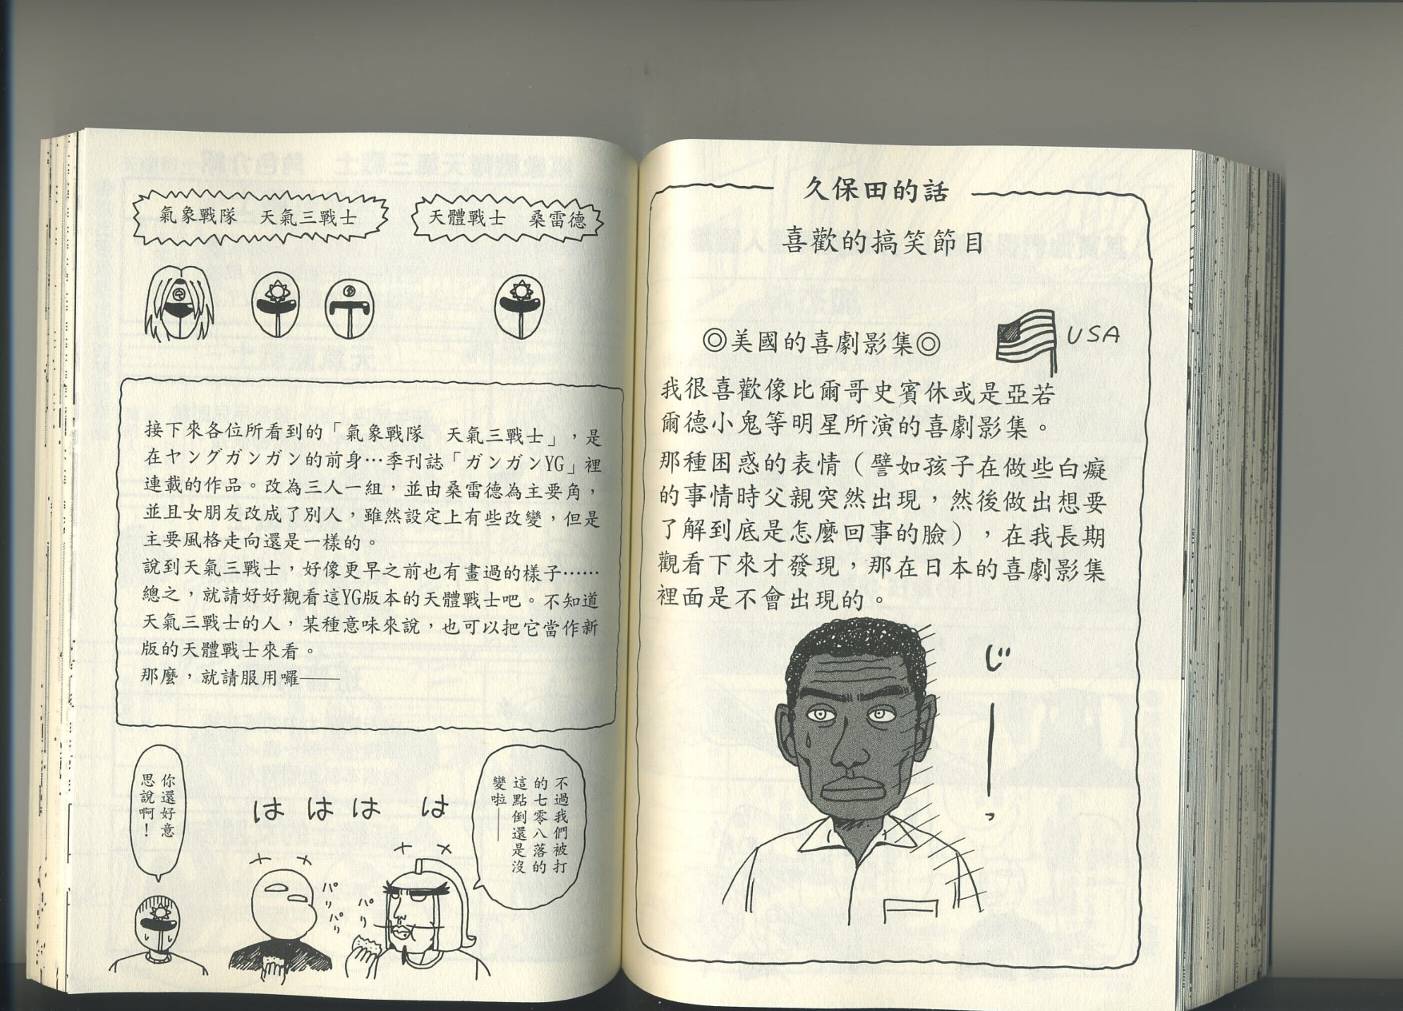 氣象戰隊　天氣三戰士
天體戰士　桑雷德
接下來各位所看到的「氣象戰隊　天氣三戰士」，是
在ヤングガンガン的前身…季刊誌「ガンガンYG」裡
連載的作品。改為三人一組，並由桑雷德為主要角，
並且女朋友改成了別人，雖然設定上有些改變，但是
主要風格走向還是一樣的。
說到天氣三戰士，好像更早之前也有畫過的樣子……
總之，就請好好觀看這YG版本的天體戰士吧。不知道
天氣三戰士的人，某種意味來說，也可以把它當作新
版的天體戰士來看。
那麼，就請服用囉——
不過我們被打
的七零八落的
這點倒還是沒
變啦——
は は は は
パリパリ
パリ
你還好意
思說啊！
久保田的話
喜歡的搞笑節目
◎美國的喜劇影集◎
USA
我很喜歡像比爾哥史賓休或是亞若
爾德小鬼等明星所演的喜劇影集。
那種困惑的表情（譬如孩子在做些白癡
的事情時父親突然出現，然後做出想要
了解到底是怎麼回事的臉），在我長期
觀看下來才發現，那在日本的喜劇影集
裡面是不會出現的。
じーっ